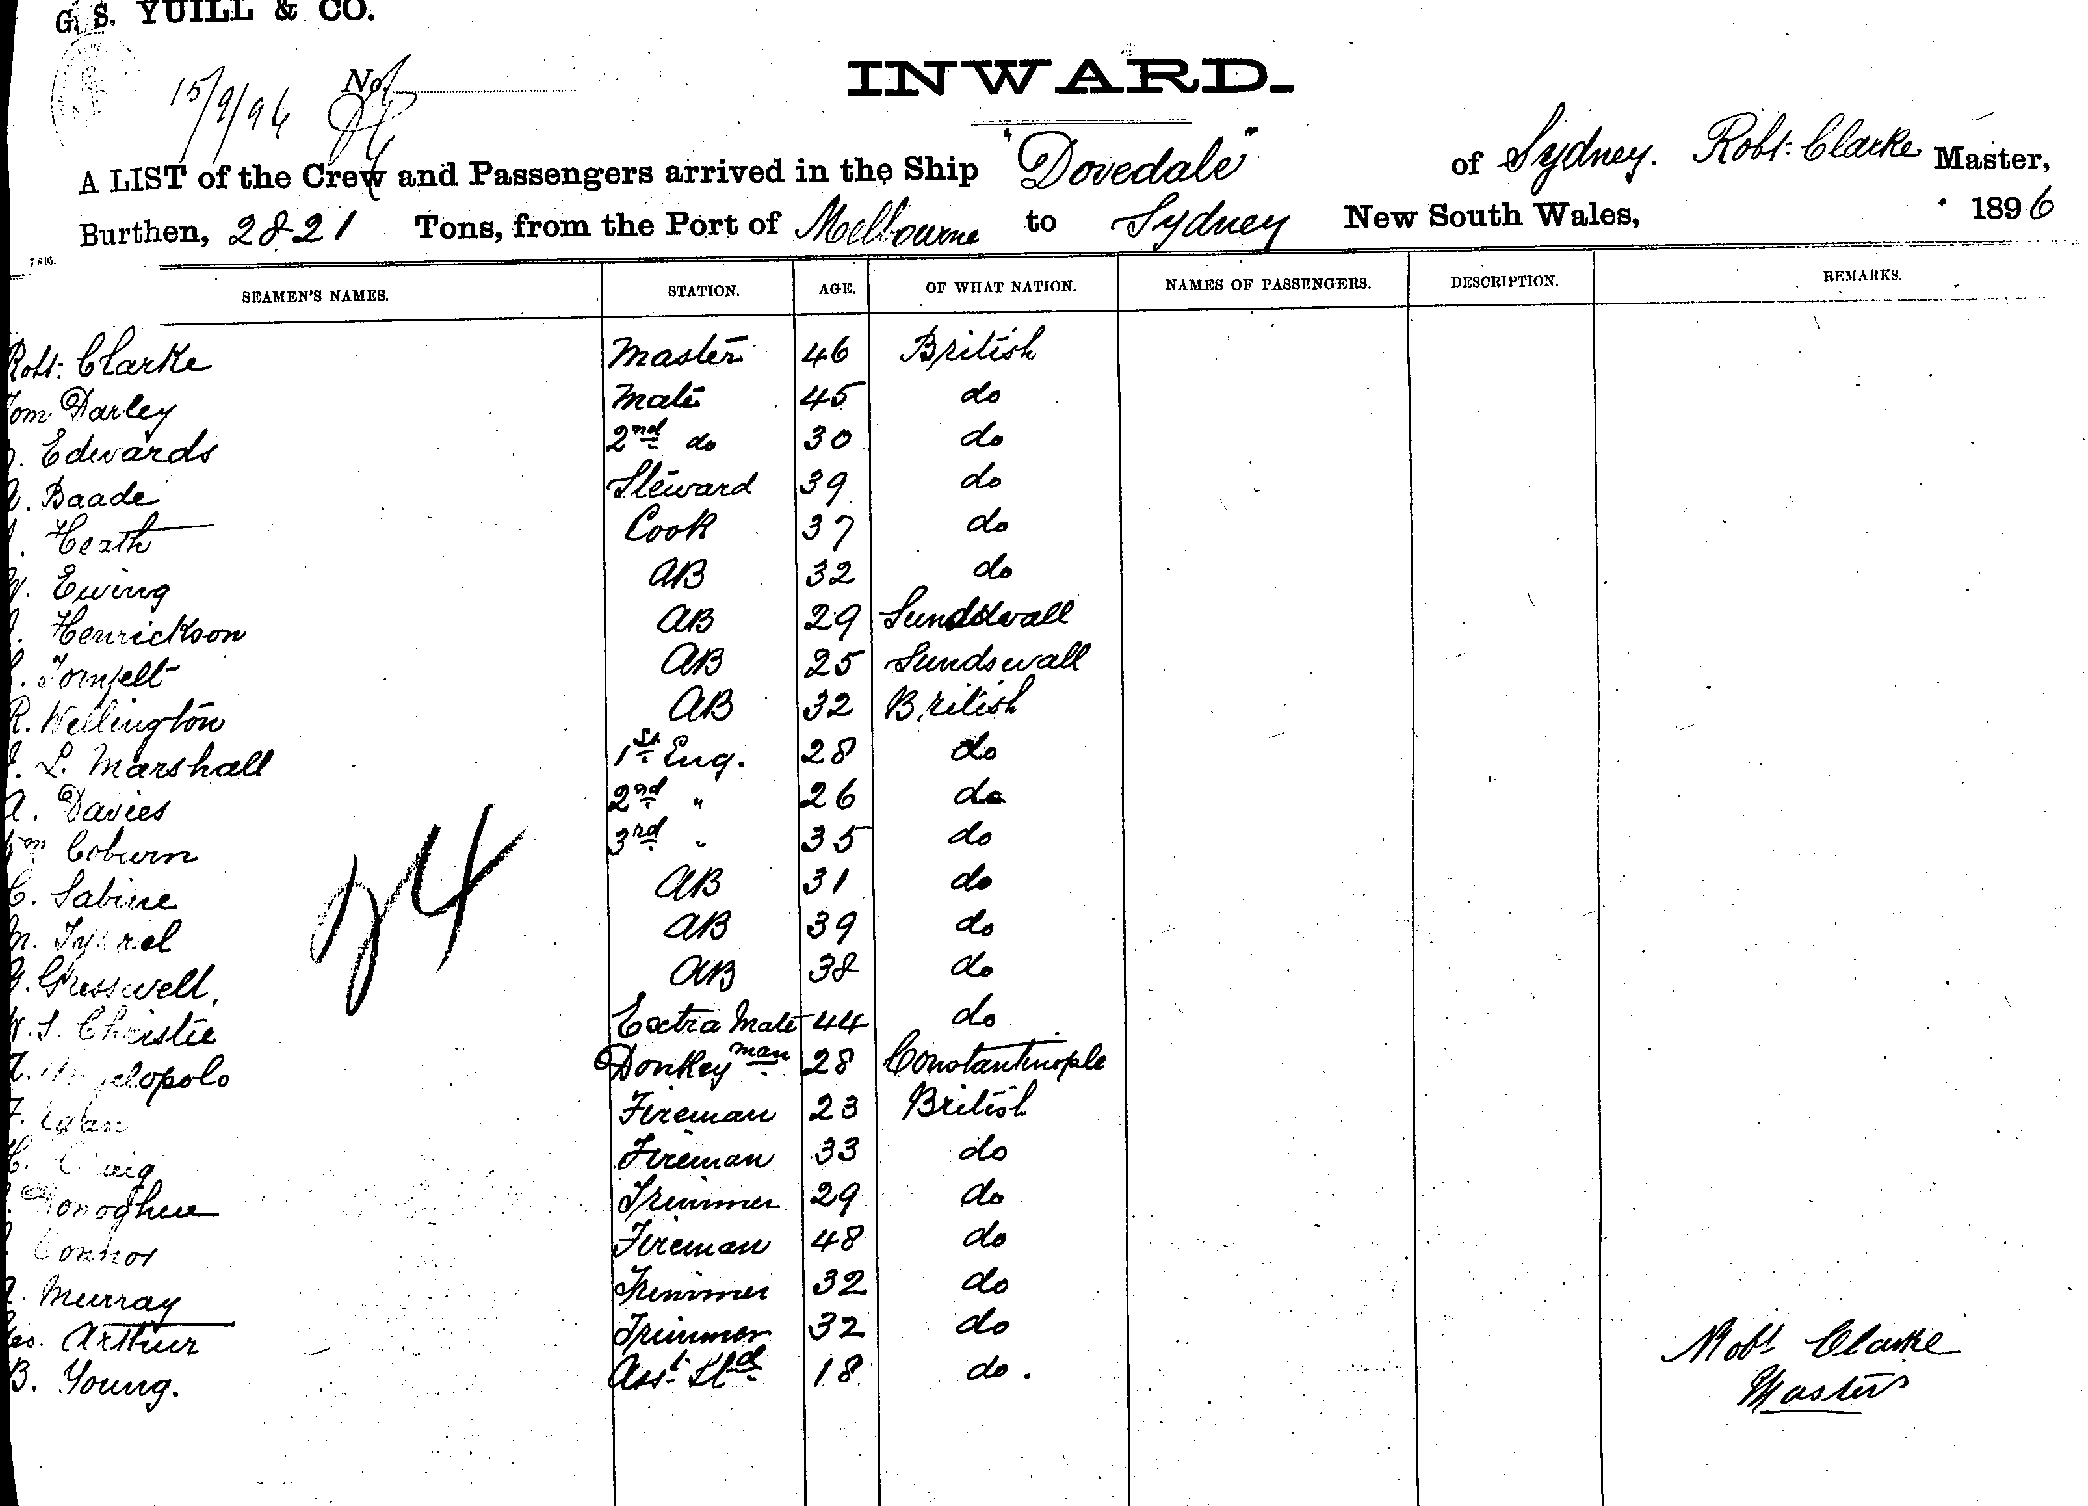 G. S. YUILL & CO.
15/9/96 No.
INWARD.
A LIST of the Crew and Passengers arrived in the Ship "Dovedale" of Sydney. Robt. Clarke Master,
Burthen, 2821 Tons, from the Port of Melbourne to Sydney New South Wales, 1896
SEAMEN'S NAMES. STATION. AGE. OF WHAT NATION. NAMES OF PASSENGERS. DESCRIPTION. REMARKS.
Robt. Clarke Master 46 British
Tom Darley Mate 45 do
Edwards 2nd do 30 do
Baade Steward 39 do
Heath Cook 37 do
Ewing AB 32 do
Henrickson AB 29 Sundswall
AB 25 Sundswall
R. Wellington AB 32 British
L. Marshall 1st Eng. 28 do
A. Davies 2nd " 26 do
Wm Coburn 3rd " 35 do
C. Sabine AB 31 do
AB 39 do
Gresswell. AB 38 do
24
Christie Extra Mate 44 do
Donkeyman 28 Constantinople
F. Fireman 23 British
Fireman 33 do
Donoghue Trimmer 29 do
Connor Fireman 48 do
Murray Trimmer 32 do
Arthur Trimmer 32 do
B. Young. Asst. Std 18 do.
Robt Clarke
Master